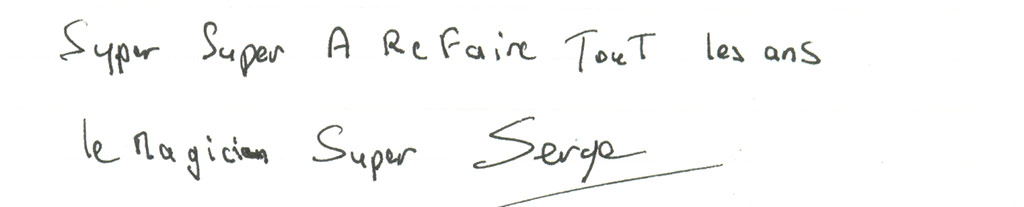 Super Super A Refaire Tout les ans
le Magicien Super Serge